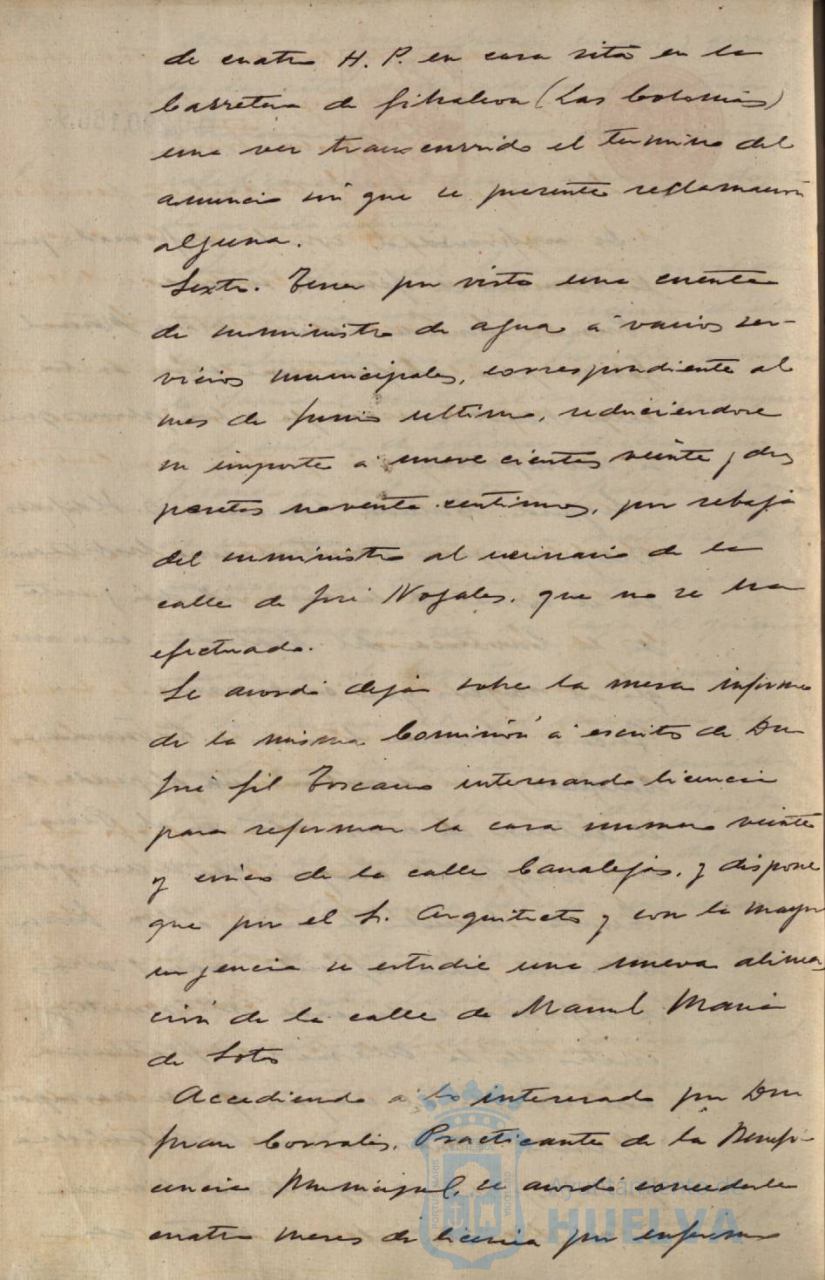 de cuatro H. P. en casa sita en la
Carretera de Gibraleon (Las Colonias)
una vez transcurrido el termino del
anuncio sin que se presente reclamación
alguna.
Sexto. Tener por visto una cuenta
de suministro de agua á varios ser-
vicios municipales, correspondiente al
mes de Junio ultimo, reduciendose
su importe a nuevecientas veinte y dos
pesetas noventa centimos, por rebaja
del suministro al urinario de la
calle de José Nogales, que no se ha
efectuado.
Se acordó dejar sobre la mesa informe
de la misma Comisión á escrito de Don
José Gil Toscano interesando licencia
para reformar la casa numero veinte
y cinco de la calle Canalejas, y disponer
que por el Sr. Arquitecto y con la mayor
urgencia se estudie una nueva alinea
ción de la calle de Manuel Maria
de Soto
Accediendo a lo interesado por Don
Juan Corrales, Practicante de la Benefi-
cencia Municipal, se acordó concederle
cuatro meses de licencia por enfermo
Ayuntamiento de
HUELVA